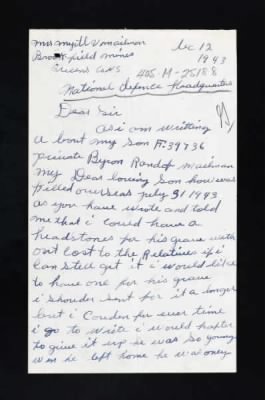 Mrs Myrtl V mailman
Dec 12
Brookfield mines
1943
Queens Co NS
405-M-25188
National defence Headquarters
Dear Sir
as i am writting
a bout my son F.39736
private Byron Randof mailman
my Dear loving Son how was
killed overseas July 31 1943
as you have wrote and told
me that i could have a
headstones for his grave with
out cost to the Relatives if i
can still get it i would like
to have one for his grave
i shouder sent for it a longer
but i Couden for ever time
i go to write i would hafter
to give it up he was so young
wen he left home he wa oney